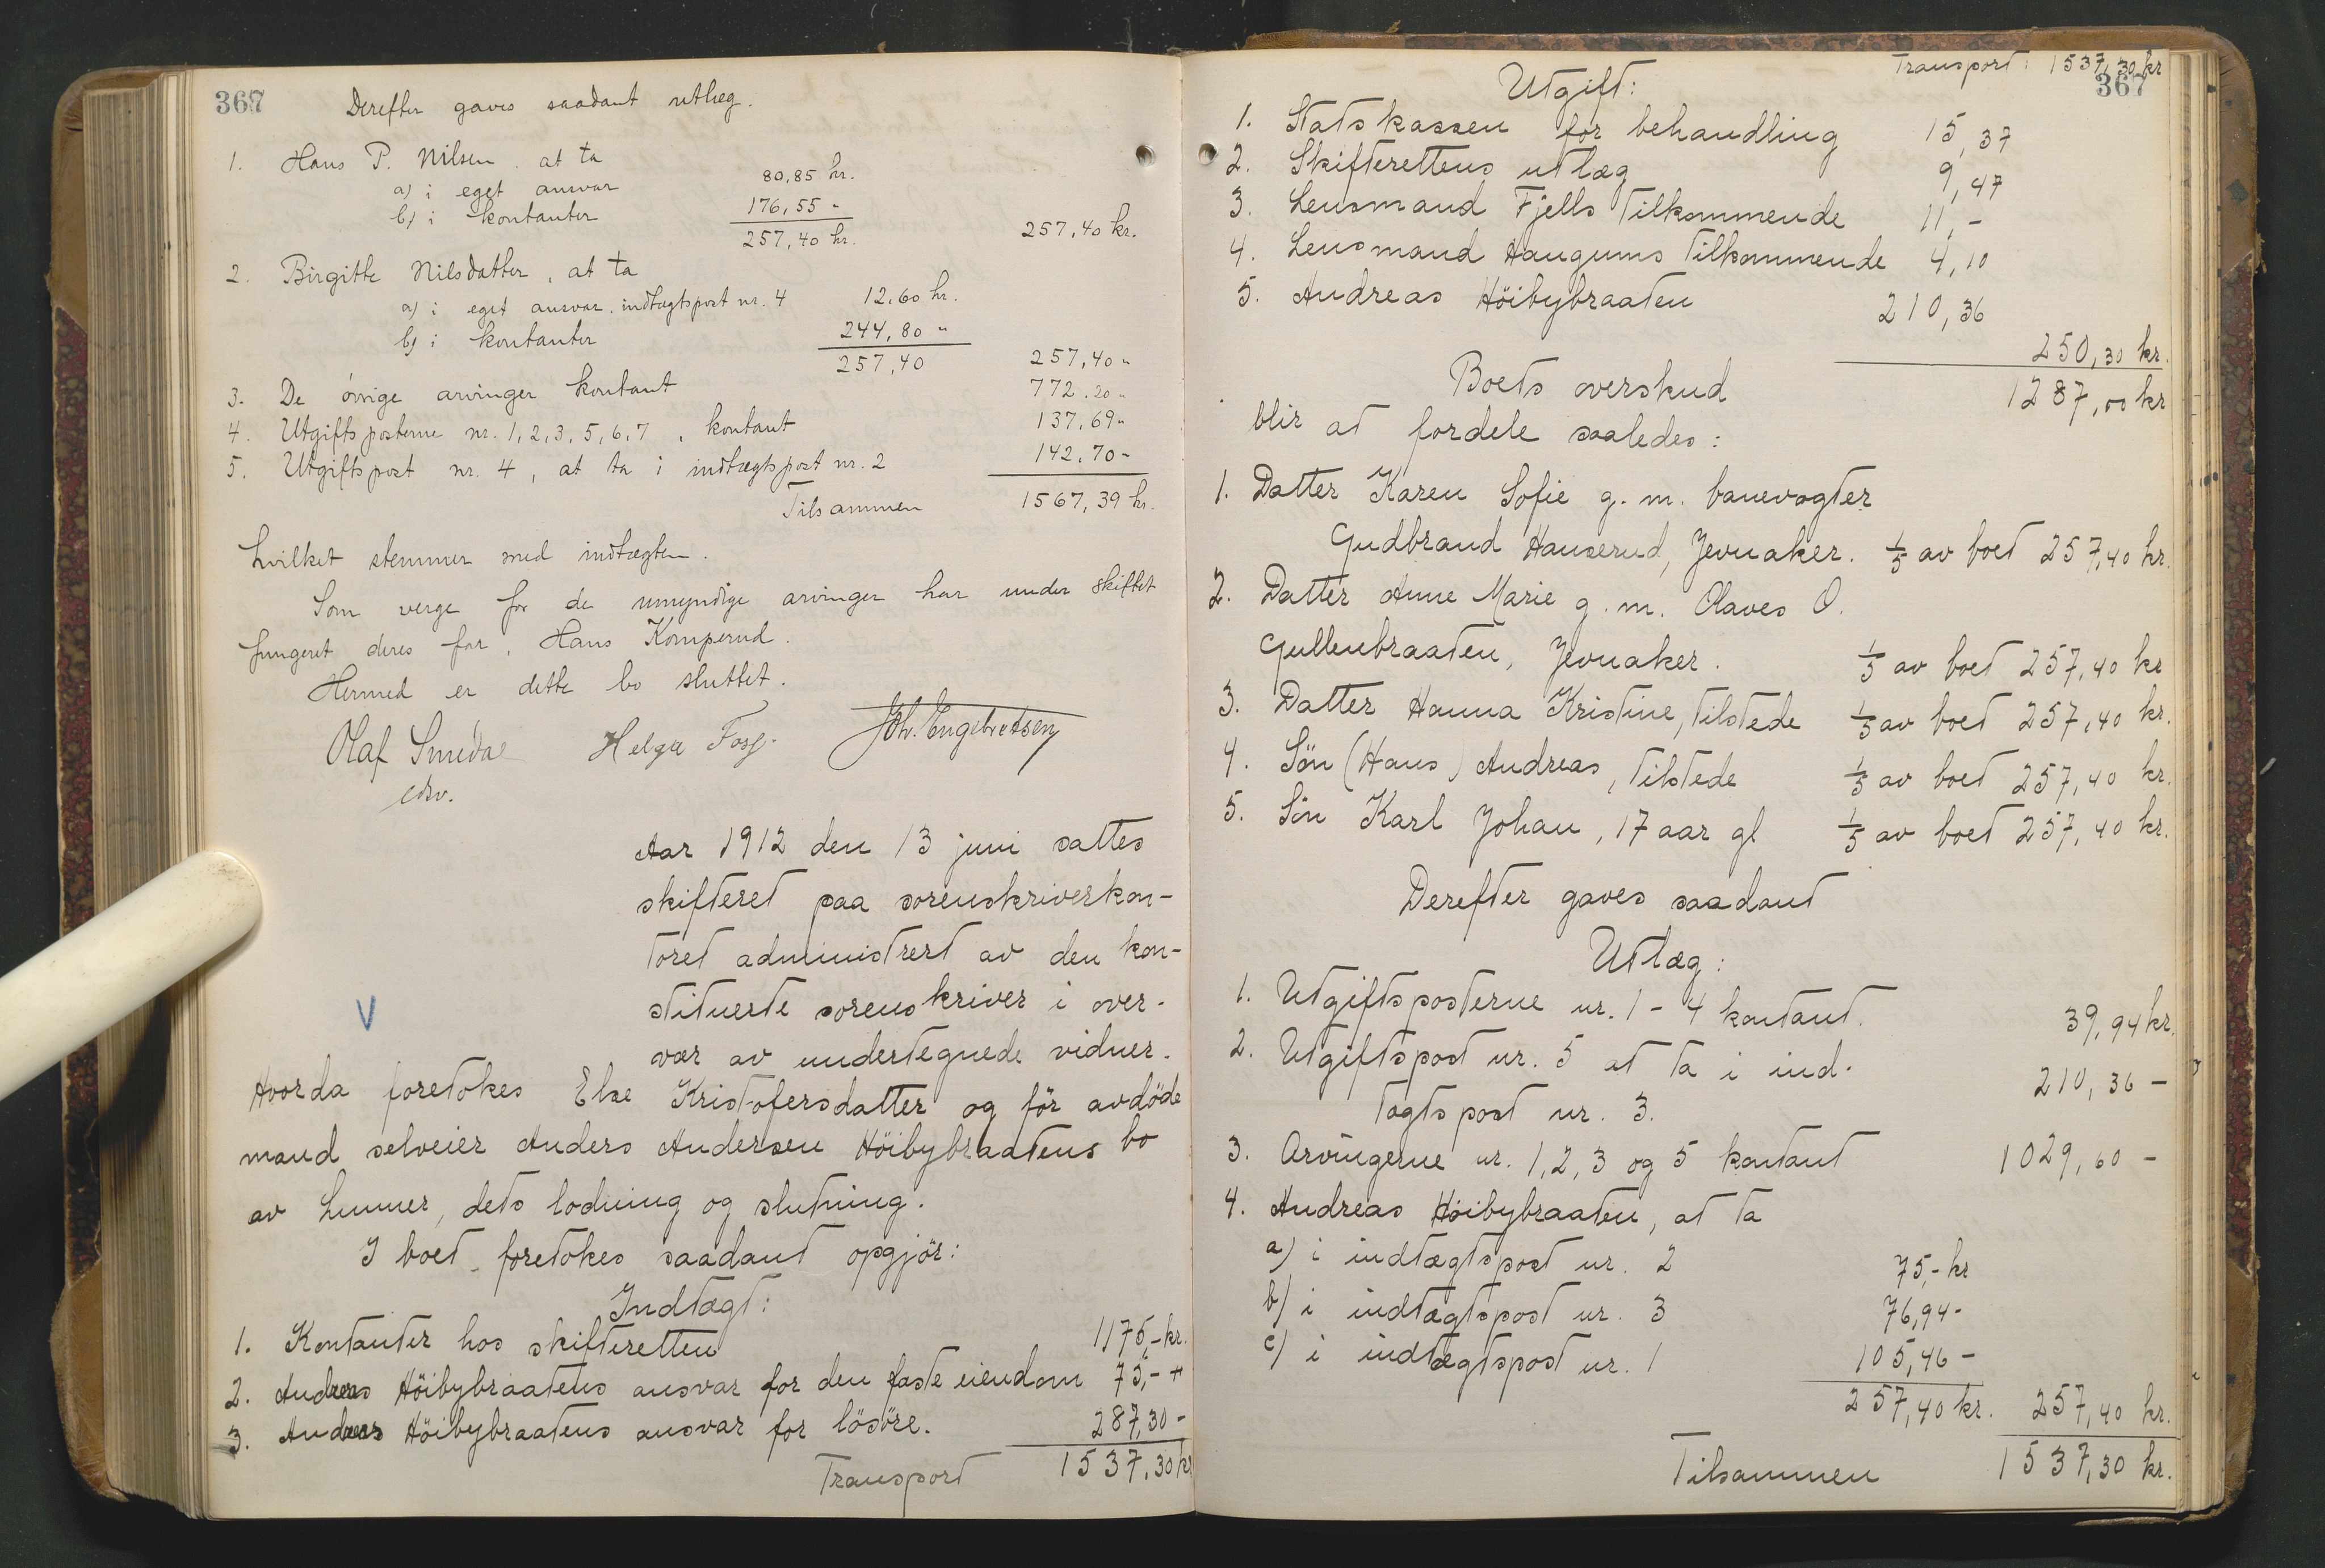 367
Derefter gaves saadant utlæg.
1. Hans P. Nilsen at ta
a) i eget ansvar 80,85 kr.
b) i kontanter 176,55 -
257,40 kr. 257,40 kr.
2. Birgitte Nilsdatter, at ta
a) i eget ansvar. indtægtspost nr. 4 12,60 kr.
b) i kontanter 244,80 "
257,40 257,40 "
3. De övrige arvinger kontant 772.20 "
4. Utgiftsposterne nr. 1, 2, 3, 5, 6, 7, kontant 137,69 "
5. Utgiftspost nr. 4, at ta i indtægtspost nr. 2 142.70 -
Tilsammen 1567,39 kr.
hvilket stemmer med indtægten.
Som verge for de umyndige arvinger har under skiftet
fungeret deres far, Hans Komperud.
Hermed er dette bo sluttet.
Olaf Smeda Helga Foss. Joh. Engebretsen
edsv.
Aar 1912 den 13 juni sattes
skifteret paa sorenskriverkon-
toret administrert av den kon-
stituerte sorenskriver i over-
vær av undertegnede vidner.
V
Hvorda foretokes Else Kristofersdatter og för avdöde
mand selveier Anders Andersen Höibybraatens bo
av Lunner, dets lodning og slutning.
I boet foretokes saadant opgjör:
Indtægt:
1. Kontanter hos skifteretten 1175,- kr.
2. Andreas Höibybraatens ansvar for den faste eiendom 75,- "
3. Andreas Höibybraatens ansvar for lösöre. 287,30 -
Transport 1537,30 kr
Transport: 1537,30 kr
367
Utgift:
1. Statskassen for behandling 15,37
2. Skifterettens utlæg 9,47
3. Lensmand Fjells tilkommende 11,-
4. Lensmand Haugums tilkommende 4,10
5. Andreas Höibybraaten 210,36
250,30 kr.
Boets overskud 1287,00 kr
blir at fordele saaledes:
1. Datter Karen Sofie g. m. banevogter
Gudbrand Hauserud, Jevnaker. 1/5 av boet 257,40 kr.
2. Datter Anne Marie g. m. Olaves O.
Gullenbraaten, Jevnaker. 1/5 av boet 257,40 kr
3. Datter Hanna Kristine, tilstede 1/5 av boet 257,40 kr.
4. Sön (Hans) Andreas, tilstede 1/5 av boet 257,40 kr.
5. Sön Karl Johan, 17 aar gl 1/5 av boet 257,40 kr.
Derefter gaves saadant
Utlæg:
1. Utgiftsposterne nr. 1 - 4 kontant. 39,94 kr.
2. Utgiftspost nr. 5 at ta i ind-
tægtspost nr. 3. 210,36 -
3. Arvingerne nr. 1, 2, 3 og 5 kontant 1029,60 -
4. Andreas Höibybraaten, at ta
a) i indtægtspost nr. 2 75,- kr
b) i indtægtspost nr. 3 76,94 -
c) i indtægtspost nr. 1 105,46 -
257,40 kr. 257,40 kr.
Tilsammen 1537,30 kr.